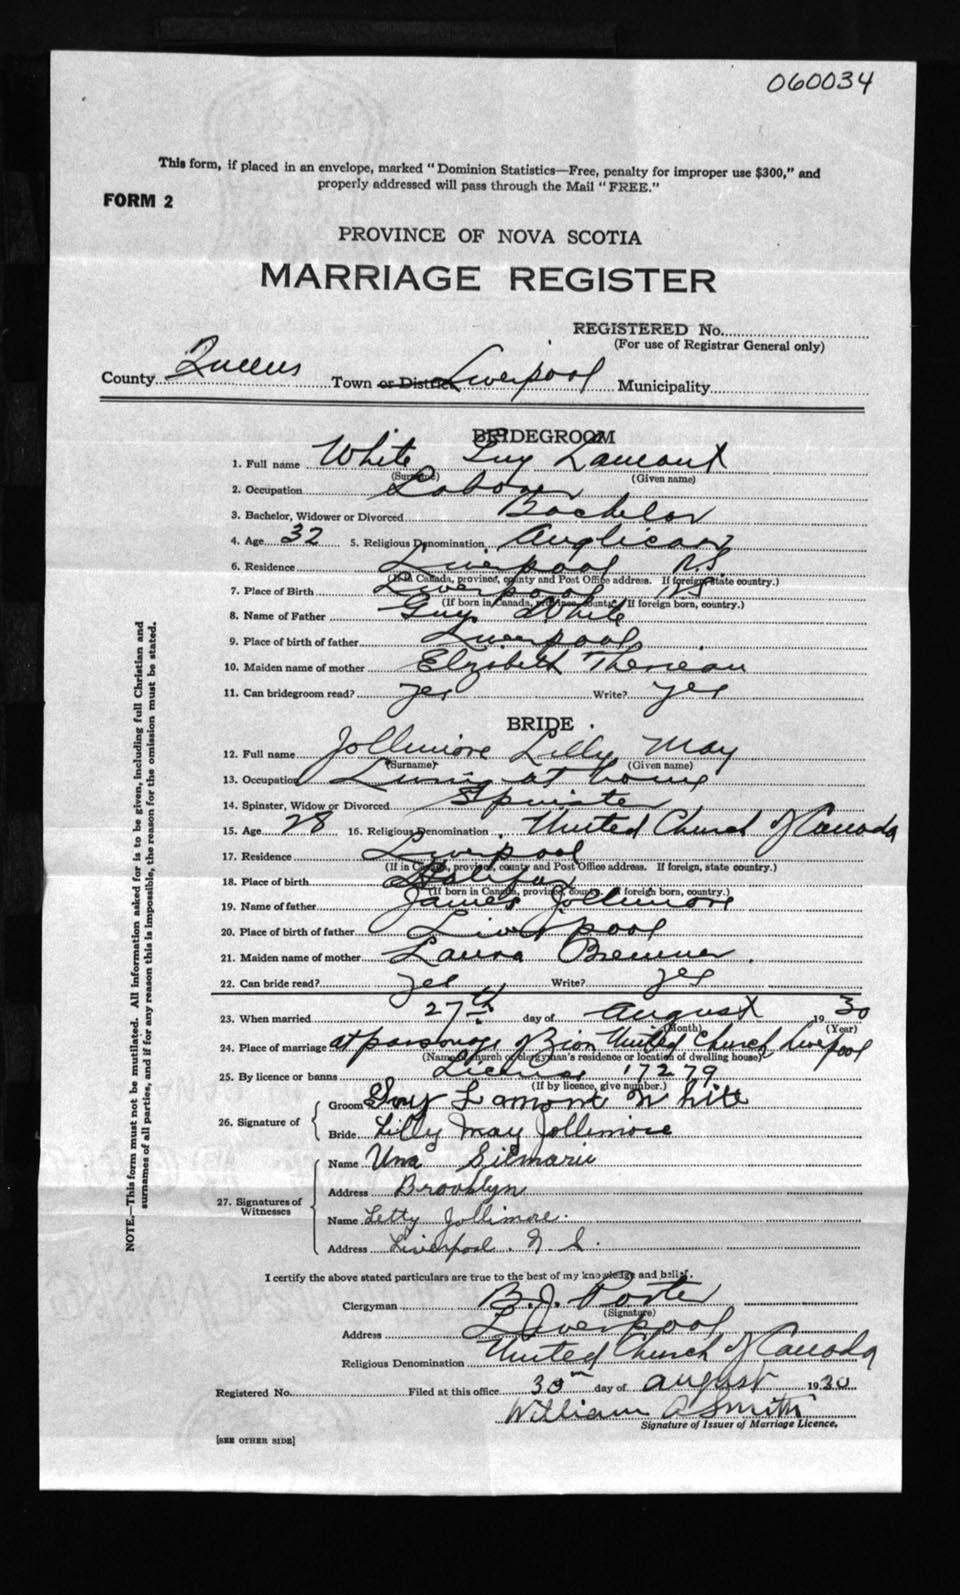 060034
This form, if placed in an envelope, marked "Dominion Statistics—Free, penalty for improper use $300," and
properly addressed will pass through the Mail "FREE."
FORM 2
PROVINCE OF NOVA SCOTIA
MARRIAGE REGISTER
REGISTERED No.
(For use of Registrar General only)
County Queens Town or District Liverpool Municipality
BRIDEGROOM
1. Full name White Guy Lamont
(Surname) (Given name)
2. Occupation Laborer
3. Bachelor, Widower or Divorced Bachelor
4. Age 32 5. Religious Denomination Anglican
6. Residence Liverpool N.S.
(If in Canada, province, county and Post Office address. If foreign, state country.)
7. Place of Birth Liverpool NS
(If born in Canada, province, county. If foreign born, country.)
8. Name of Father Guy White
9. Place of birth of father Liverpool
10. Maiden name of mother Elizabeth Therieau
11. Can bridegroom read? yes Write? yes
BRIDE
12. Full name Jollimore Lilly May
(Surname) (Given name)
13. Occupation Living at home
14. Spinster, Widow or Divorced Spinster
15. Age 28 16. Religious Denomination United Church of Canada
17. Residence Liverpool
(If in Canada, province, county and Post Office address. If foreign, state country.)
18. Place of birth Halifax
(If born in Canada, province, county. If foreign born, country.)
19. Name of father James Jollimore
20. Place of birth of father Liverpool
21. Maiden name of mother Laura Bremner
22. Can bride read? yes Write? yes
23. When married 27th day of August 1930
(Month) (Year)
24. Place of marriage at parsonage of Zion United Church Liverpool
(Name of church or clergyman's residence or location of dwelling house)
25. By licence or banns License 17279
(If by licence, give number.)
26. Signature of
Groom Guy Lamont White
Bride Lilly May Jollimore
27. Signatures of Witnesses
Name Una
Address Brooklyn
Name Letty Jollimore.
Address Liverpool. N S.
I certify the above stated particulars are true to the best of my knowledge and belief.
Clergyman B.J. Porter
(Signature)
Address Liverpool
Religious Denomination United Church of Canada
Registered No. Filed at this office 30th day of August 1930
William A Smith
Signature of Issuer of Marriage Licence.
[SEE OTHER SIDE]
NOTE.—This form must not be mutilated. All information asked for is to be given, including full Christian and
surnames of all parties, and if for any reason this is impossible, the reason for the omission must be stated.